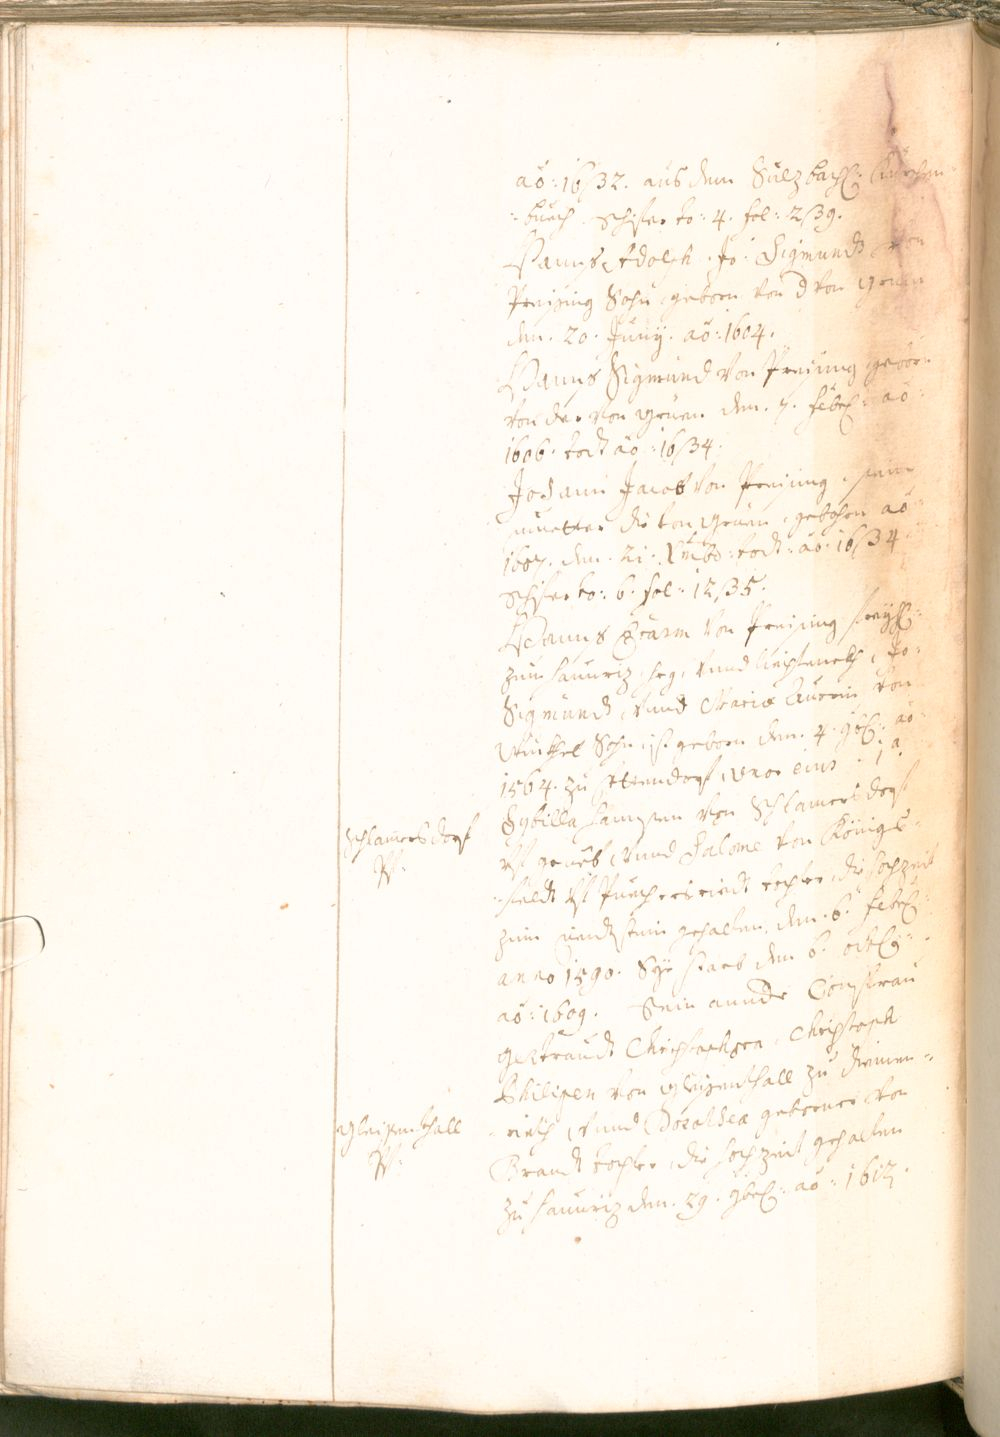 aõ: 1632. aus dem Sulzbach: Kürchen=
=buech. Schifer to: 4. fol: 239.
Hanns Adolph. Jo: Sigmundt von
Preising Sohn, geborn von d von gruen
den. 20. Junÿ. aõ: 1604.
Hanns Sigmund von Preising geborn
von der von gruen. den. 7. febr: aõ
1606. todt aõ: 1634.
Johann Jacob von Preising. sein
muetter die von gruen, geborn aõ
1607. den. 21. todt: aõ: 1634
Schifer to: 6. fol: 1235.
Hanns von Preising freyh:
zum hauriz, vnnd liechteneck, Jo:
Sigmundt, vnnd Maria von
Sohn, ist geborn den. 4. 9br: aõ
1564. zu ettendorf, uxor eius. 1a.
Sybilla von Schlamersdorf
vnnd Salome von Königs=
=feldt tochter, die hochzeit
zum gehalten, den. 6. febr:
anno 1590. Sye starb den 6. octobr:
aõ: 1609. Sein annder Consfrau
gertraudt Christophern, Christoph
Philipen von gleissenthall zu
vnnd Dorothea geborner von
Brandt tochter, die hochzeit gehalten
zu hauriz den. 29. 9br: aõ: 1612.
Schlamersdorf
gleissenthall